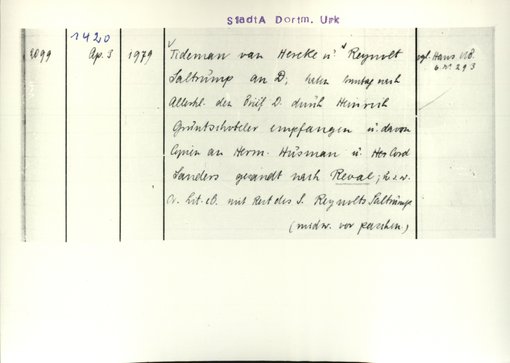 StadtA Dortm. Urk
1420
2099 Ap. 3 1979 Tideman van Hercke u. Reynolt
Saltrump an D, haben Sonntag nach
Allerhl. den Brief D. durch Heinrich
Gruntschoteler empfangen u. davon
Copien an Herm. Husman u. Her Cord
Sanders gesandt nach Reval,
Or. Lit. cl. mit Rest des S. Reynolts Saltrump
(midw. vor paschen.)
vgl. Hans. UB.
6 N° 293